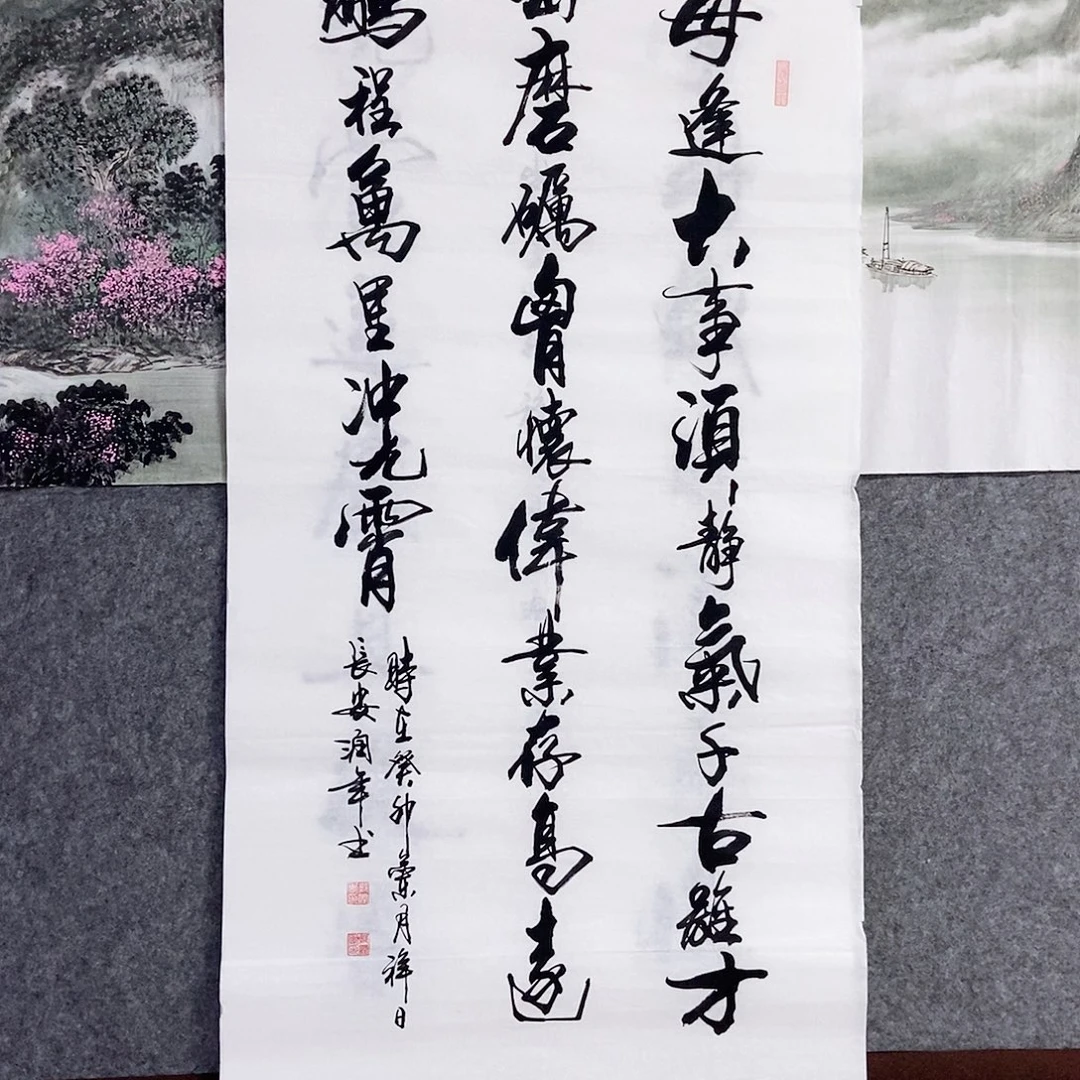 每逢大事須靜氣千古雄才
磨礪胷懷偉業存高遠
鵬程萬里冲九霄
時在癸卯月祥日
長安潤年书